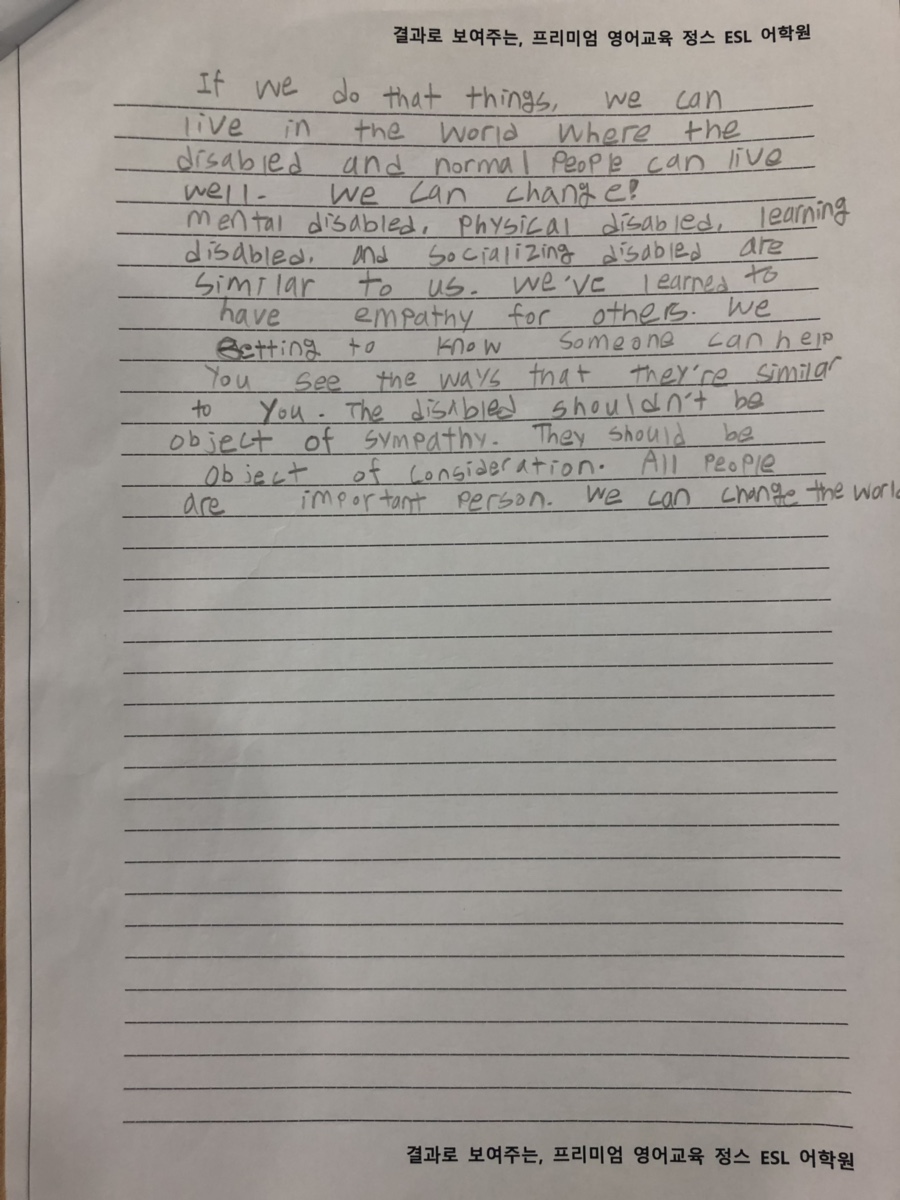 결과로 보여주는, 프리미엄 영어교육 정스 ESL 어학원
If we do that things, we can
live in the world where the
disabled and normal people can live
well. We can change!
mental disabled, physical disabled, learning
disabled, and socializing disabled are
similar to us. We've learned to
have empathy for others. We
Getting to know someone can help
You see the ways that they're similar
to you. The disabled shouldn't be
object of sympathy. They should be
object of consideration. All people
are important person. We can change the world
결과로 보여주는, 프리미엄 영어교육 정스 ESL 어학원